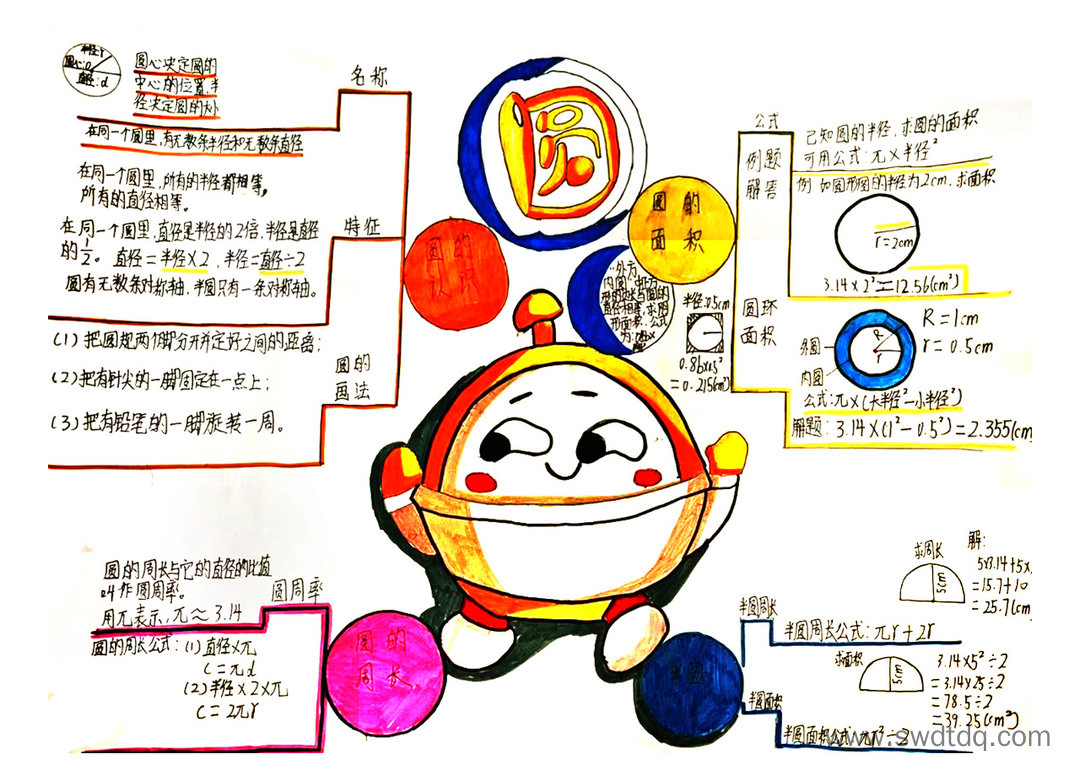 圆
半径:r
圆心:o
直径:d
圆心决定圆的
中心的位置,半
径决定圆的大小
名称
在同一个圆里,有无数条半径和无数条直径
在同一个圆里,所有的半径都相等。
所有的直径相等。
特征
在同一个圆里,直径是半径的2倍,半径是直径
的1/2。 直径=半径×2,半径=直径÷2
圆有无数条对称轴,半圆只有一条对称轴。
圆的
认识
圆的
画法
(1)把圆规两个脚分开并定好之间的距离;
(2)把有针尖的一脚固定在一点上;
(3)把有铅笔的一脚旋转一周。
圆的
面积
公式
已知圆的半径,求圆的面积
可用公式:π×半径²
例题
解答
例 如圆形圆的半径为2cm,求面积
r=2cm
3.14×2²=12.56(cm²)
"外方
内圆",
的边长与圆的
直径相等,求图
形面积,公式
为:
半径:0.5cm
0.86×0.5²
=0.215(cm²)
圆环
面积
R=1cm
r=0.5cm
R
r
外圆
内圆
公式:π×(大半径²-小半径²)
解题:3.14×(1²-0.5²)=2.355(cm
圆的周长与它的直径的比值
叫作圆周率。
用π表示,π≈3.14
圆周率
圆的周长公式:(1)直径×π
C=πd
(2)半径×2×π
C=2πr
圆的
周长
半圆
半圆周长
求周长
5cm
解:
5×3.14+5×
=15.7+10
=25.7(cm
半圆周长公式:πr+2r
求面积
5cm
3.14×5²÷2
=3.14×25÷2
=78.5÷2
=39.25(cm²)
半圆面积
半圆面积公式:πr²÷2
www.swdtdq.com